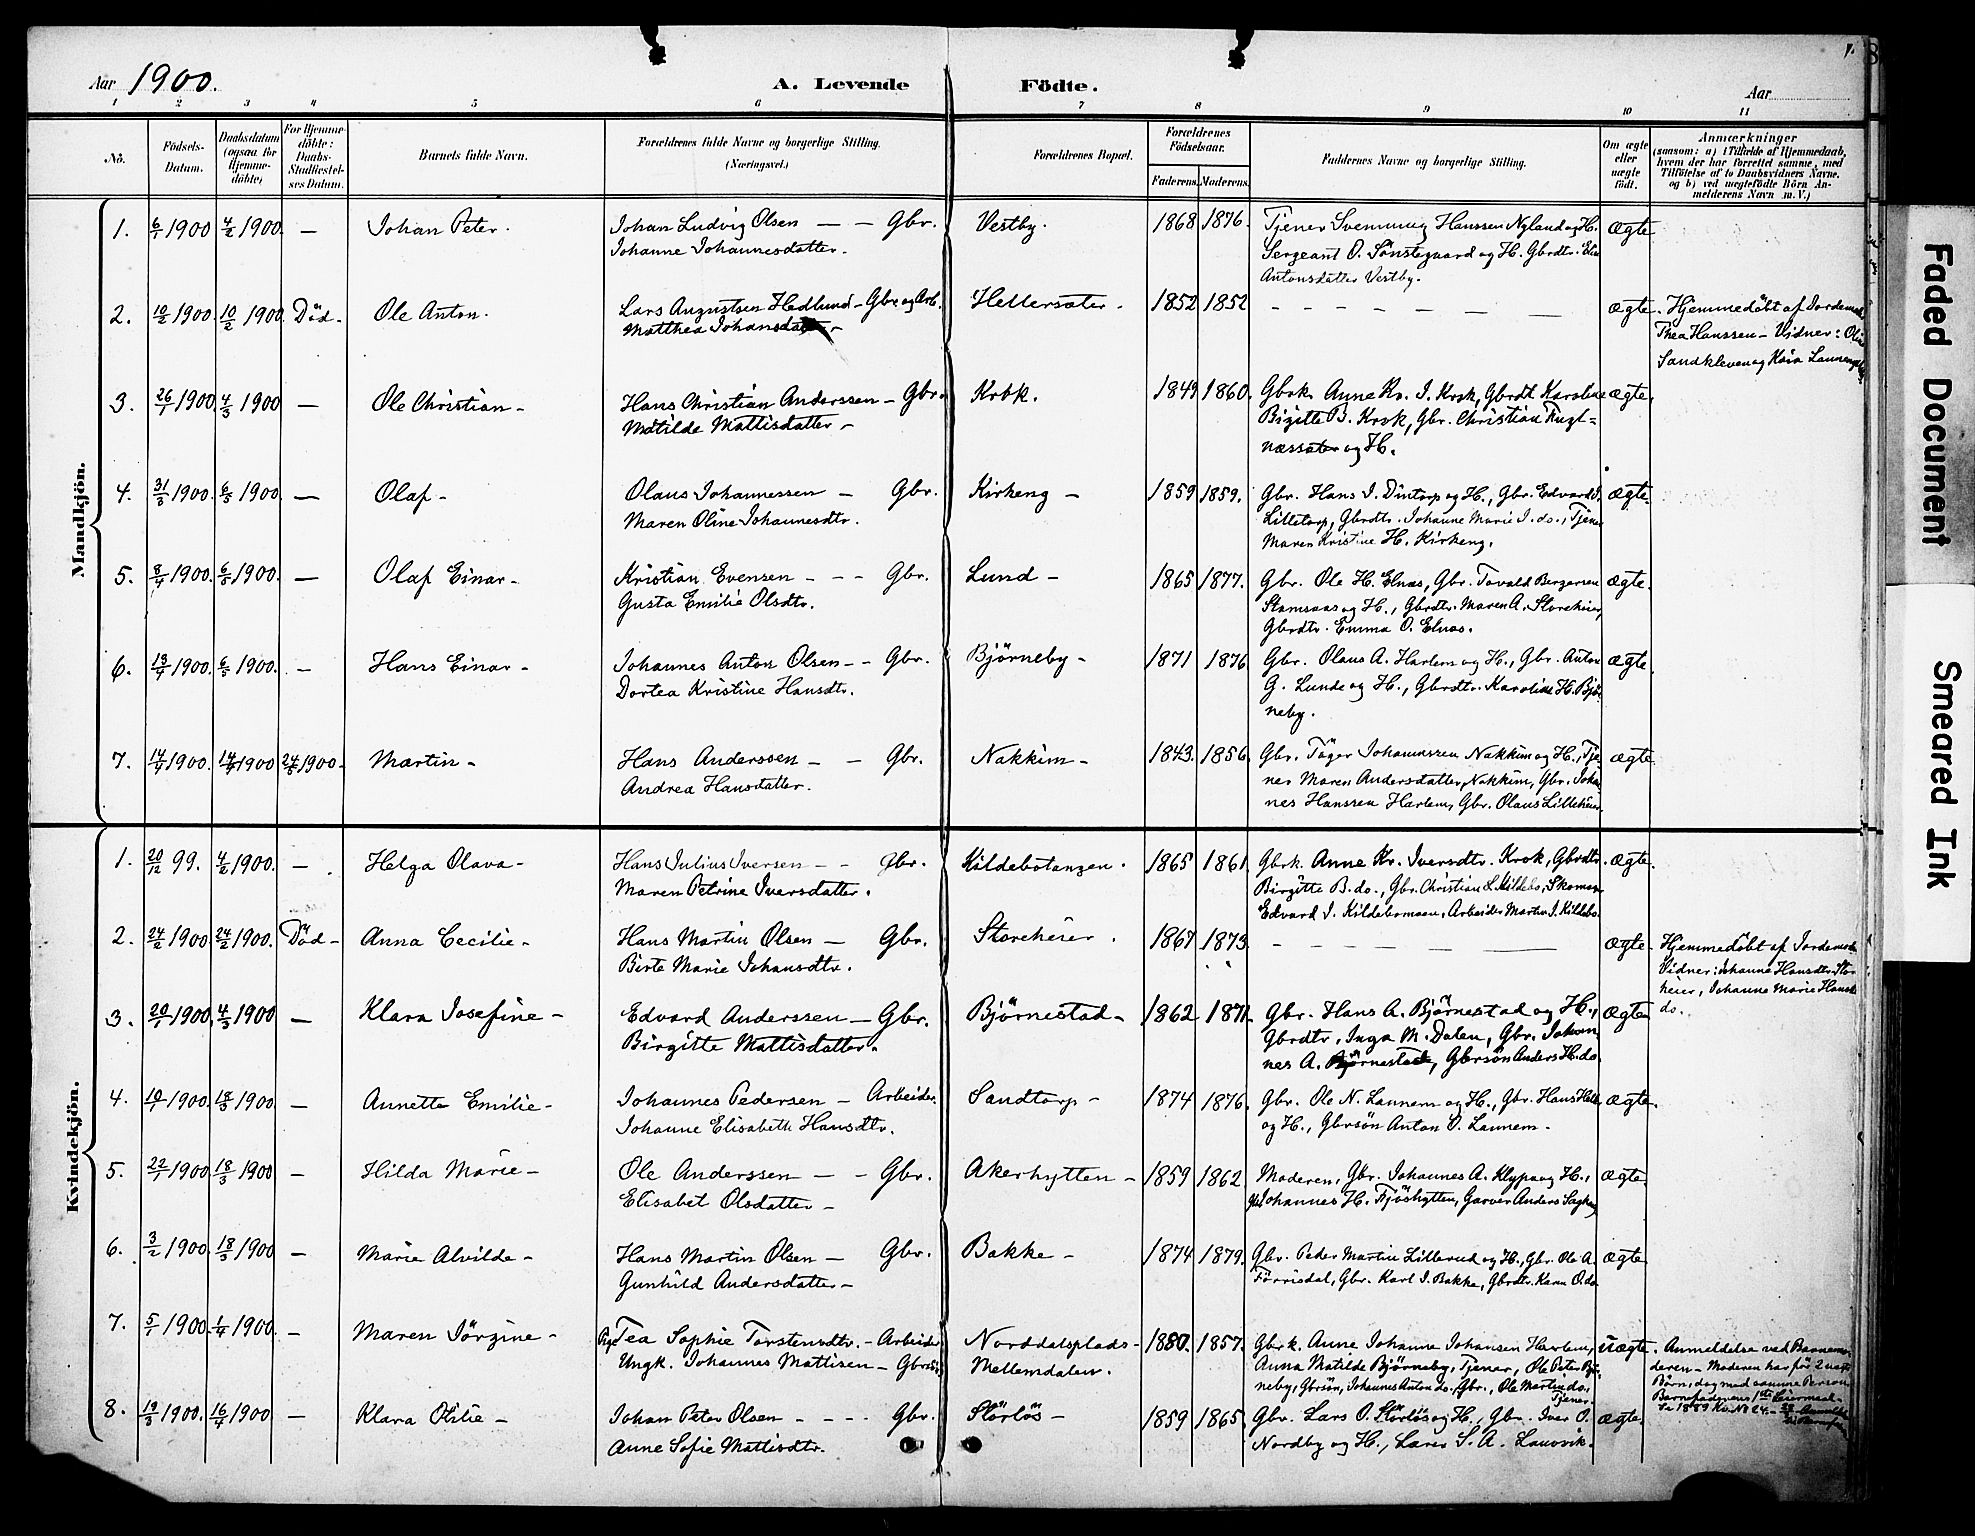 Aar 1900.
A. Levende Födte.
Aar
1 2 3 4 5 6 7 8 9 10 11
No.
Födsels-Datum.
Daabsdatum (ogsaa for Hjemme-döbte)
For Hjemme-döbte: Daabs-Stadfæstel-ses Datum.
Barnets fulde Navn.
Forældrenes fulde Navne og borgerlige Stilling. (Næringsvei.)
Forældrenes Bopæl.
Forældrenes Födselsaar.
Faderens. Moderens.
Faddernes Navne og borgerlige Stilling.
Om ægte eller uægte født.
Anmærkninger
(saasom: a) i Tilfælde af Hjemmedaab,
hvem der har forrettet samme, med
Tilföielse af to Daabsvidners Navne.
og b) ved uægtefödte Börn An-
melderens Navn m. V.)
Mandkjön.
1. 6/1 1900 4/2 1900. — Johan Peter. Johan Ludvig Olsen — — Gbr. Vestby. 1868 1876. Tjener Svennung Hanssen Nyland og H. ægte
Johanne Johannesdatter. Sergeant O. Sønstegaard og H. Gbrdtr.
Antonsdatter Vestby.
2. 10/2 1900. 10/2 1900 Död. Ole Anton. Lars Augustsen Hedlund — Gbr. og Arb. Hellersæter. 1852 1852 — — — — — — ægte. Hjemmedöbt af
Matthea Thea Hanssen — Vidner:
Sandkleven og
3. 26/1 1900 4/3 1900 — Ole Christian — Hans Christian Anderssen — Gbr. Krok. 1849 1860. Gbrk. Anne Kr. I. Krok, Gbrdt. Karoline ægte.
Matilde Mattisdatter — Birgitte B. Krok, Gbr. Christian
og H.
4. 31/3 1900. 6/5 1900. — Olaf — Olaus Johannessen — Gbr. Kirkeng — 1859 1859. Gbr. Hans I. Dintorp og H., Gbr. Edvard I. ægte.
Maren Oline Johannesdtr. Lilletorp, Gbrdtr. Johanne Marie I. do., Tjener
Maren Kristine H. Kirkeng.
5. 8/4 1900. 6/5 1900. — Olaf Einar — Kristian Evensen — — — Gbr. Lund — 1865 1877. Gbr. Ole H. Elnæs, Gbr. Tovald Bergersen ægte.
Gusta Emilie Olsdtr. og H., Gbrdtr. Maren A. Storeheier,
Gbrdtr. Emma O. Elnæs.
6. 13/4 1900. 6/5 1900. — Hans Einar — Johannes Anton Olsen — — Gbr. Björneby — 1871 1876 Gbr. Olaus A. Harlem og H., Gbr. Anton ægte
Dortea Kristine Hansdtr. G. Lunde og H., Gbrdtr. Karoline H. Björ-
neby.
7. 14/4 1900. 14/4 1900 24/5 1900 — Martin — Hans Anderssen — — Gbr. Nakkim — 1843. 1856. Gbr. Johannessen Nakkim og H., Tje- ægte
Andrea Hansdatter. ner Maren Andersdatter, Nakkim, Gbr. Johan-
nes Hanssen Harlem, Gbr. Olaus Lilleheier
Kvindekjön.
1. 20/12 99. 4/2 1900. — Helga Olava — Hans Julius Iversen — — Gbr. Kildebotangen. 1865 1861 Gbrk. Anne Kr. Iversdtr. Krok, Gbrdtr. ægte.
Maren Petrine Iversdatter. Birgitte B. do., Gbr. Christian Kildebo,
Edvard I. Kildebomoen, Arbeider Martin I. Kildebo
2. 24/2 1900 24/2 1900. Död — Anna Cecilie — Hans Martin Olsen — Gbr. Storeheier. 1867 1873. — — — — — ægte. Hjemmedöbt af
Birte Marie Johansdtr. Vidner: Johanne Hansdtr. Store-
heier, Johanne Marie
do.
3. 20/1 1900. 4/3 1900 — Klara Josefine — Edvard Anderssen — Gbr. Björnestad — 1862 1871. Gbr. Hans A. Björnestad og H., ægte
Birgitte Mattisdatter. Gbrdtr. Inga M. Dalen, Gbr. Johan-
nes A. Björnestad, Gbrsön Anders H. do.
4. 1900. 18/3 1900 — Annette Emilie — Johannes Pedersen — Arbeider. Sandtorp — 1874 1876. Gbr. Ole N. Lannem og H., Gbr. Hans ægte.
Johanne Elisabeth Hansdtr. og H., Gbrsön Anton O. Lannem.
5. 22/1 1900 18/3 1900 — Hilda Marie — Ole Anderssen — — Gbr. Akerhytten — 1859 1862 Moderen, Gbr. Johannes A. Klypa og H., ægte
Elisabet Olsdatter — Johannes H. Fjöshytten, Garver Anders
6. 3/2 1900 18/3 1900 — Marie Alvilde — Hans Martin Olsen — Gbr. Bakke — 1874 1879. Gbr. Peder Martin Lillerud og H., Gbr. Ole A. ægte
Gunhild Andersdatter — Förrisdal, Gbr. Karl I. Bakke, Gbrdtr. Karen O. do
7. 5/1 1900. 1/4 1900. — Maren Jörgine — Pige Tea Sophie Torstensdtr. — Arbeider Norddalsplads — 1880. 1857. Gbrk. Anne Johanne Johansen Harlem, uægte. Anmeldelse ved Barnemo-
Ungk. Johannes Mattisen — Gbrsön Mellemdalen. Anna Matilde Björneby, Tjener, Ole Peter Bjö- deren — Moderen har för 2 uægte
neby, Gbrsön, Johannes Anton do., Gbr., Ole Martin do., Börn, dog med samme Person
Tjener. Barnefaderens 1ste
Se 1889 Kv. No 24.
8. 19/3 1900. 16/4 1900 — Klara Otilie — Johan Peter Olsen — — — Gbr. Störlös — 1859 1865. Gbr. Lars O. Störlös og H., Gbr. Iver O. ægte.
Anne Sofie Mattisdtr. Nordby og H., Lærer S. A. Lauvvik.
Faded Document
Smeared Ink